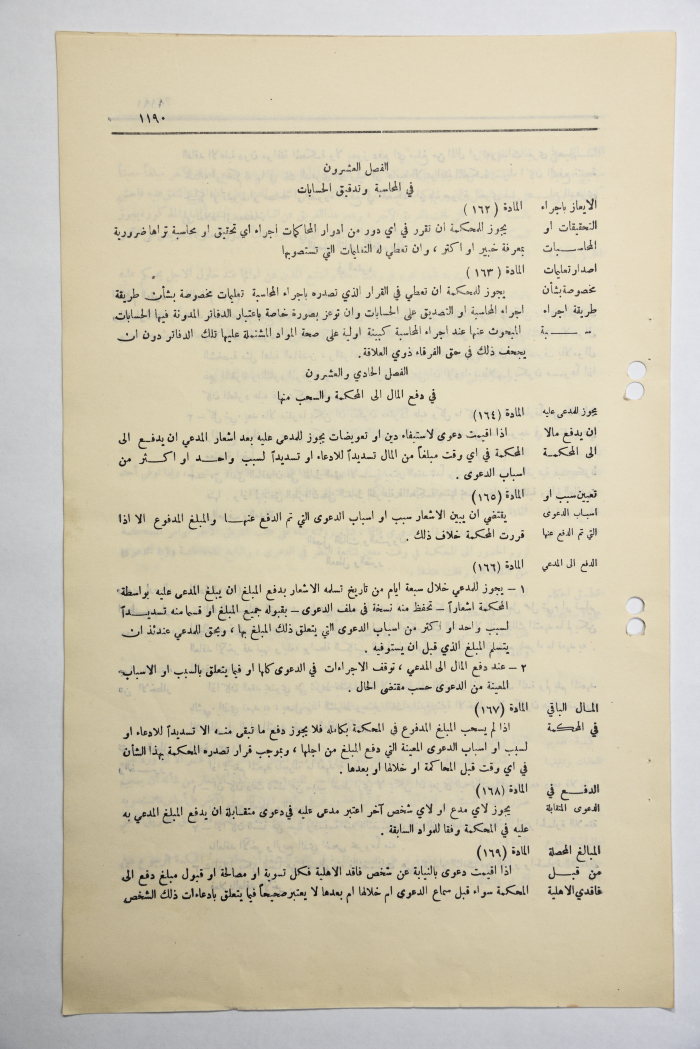 ١١٩٠
الفصل العشرون
في المحاسبة وتدقيق الحسابات
الايعاز باجراء المادة (١٦٢)
التحقيقات او يجوز للمحكمة ان تقرر في اي دور من ادوار المحاكمات اجراء اي تحقيق او محاسبة تراها ضرورية
المحاسبات بمعرفة خبير او اكثر ، وان تعطي له التعليمات التي تستصوبها
اصدار تعليمات المادة (١٦٣)
مخصوصة بشأن يجوز للمحكمة ان تعطي في القرار الذي تصدره باجراء المحاسبة تعليمات مخصوصة بشأن طريقة
طريقة اجراء اجراء المحاسبة او التصديق على الحسابات وان توعز بصورة خاصة باعتبار الدفاتر المدونة فيها الحسابات
المبحوث عنها عند اجراء المحاسبة كبينة اولية على صحة المواد المشتملة عليها تلك الدفاتر دون ان
يجحف ذلك في حق الفرقاء ذوي العلاقة.
الفصل الحادي والعشرون
في دفع المال الى المحكمة والسحب منها
يجوز للمدعى عليه المادة (١٦٤)
ان يدفع مالا اذا اقيمت دعوى لاستيفاء دين او تعويضات يجوز للمدعى عليه بعد اشعار المدعي ان يدفع الى
الى المحكمة المحكمة في اي وقت مبلغاً من المال تسديداً للادعاء او تسديداً لسبب واحد او اكثر من
اسباب الدعوى .
تعيين سبب او المادة (١٦٥)
اسباب الدعوى يقتضي ان يبين الاشعار سبب او اسباب الدعوى التي تم الدفع عنها والمبلغ المدفوع الا اذا
التي تم الدفع عنها قررت المحكمة خلاف ذلك .
الدفع الى المدعي المادة (١٦٦)
١ – يجوز للمدعي خلال سبعة ايام من تاريخ تسلمه الاشعار بدفع المبلغ ان يبلغ المدعى عليه بواسطة
المحكمة اشعاراً – تحفظ منه نسخة في ملف الدعوى – بقبوله جميع المبلغ او قسما منه تسديداً
لسبب واحد او اكثر من اسباب الدعوى التي يتعلق ذلك المبلغ بها ، ويحق للمدعي عندئذ ان
يتسلم المبلغ الذي قبل ان يستوفيه .
٢ – عند دفع المال الى المدعي ، توقف الاجراءات في الدعوى كلها او فيما يتعلق بالسبب او الاسباب
المعينة من الدعوى حسب مقتضى الحال .
المال الباقي المادة (١٦٧)
في المحكمة اذا لم يسحب المبلغ المدفوع في المحكمة بكامله فلا يجوز دفع ما تبقى منه الا تسديداً للادعاء او
لسبب او اسباب الدعوى المعينة التي دفع المبلغ من اجلها ، وبموجب قرار تصدره المحكمة بهذا الشأن
في اي وقت قبل المحاكمة او خلالها او بعدها .
الدفع في المادة (١٦٨)
الدعوى المتقابلة يجوز لاي مدع او لاي شخص آخر اعتبر مدعى عليه في دعوى متقابلة ان يدفع المبلغ المدعى به
عليه في المحكمة وفقا للمواد السابقة .
المبالغ المحصلة المادة (١٦٩)
من قبل اذا اقيمت دعوى بالنيابة عن شخص فاقد الاهلية فكل تسوية او مصالحة او قبول مبلغ دفع الى
فاقدي الاهلية المحكمة سواء قبل سماع الدعوى ام خلالها ام بعدها لا يعتبر صحيحاً فيما يتعلق بادعاءات ذلك الشخص